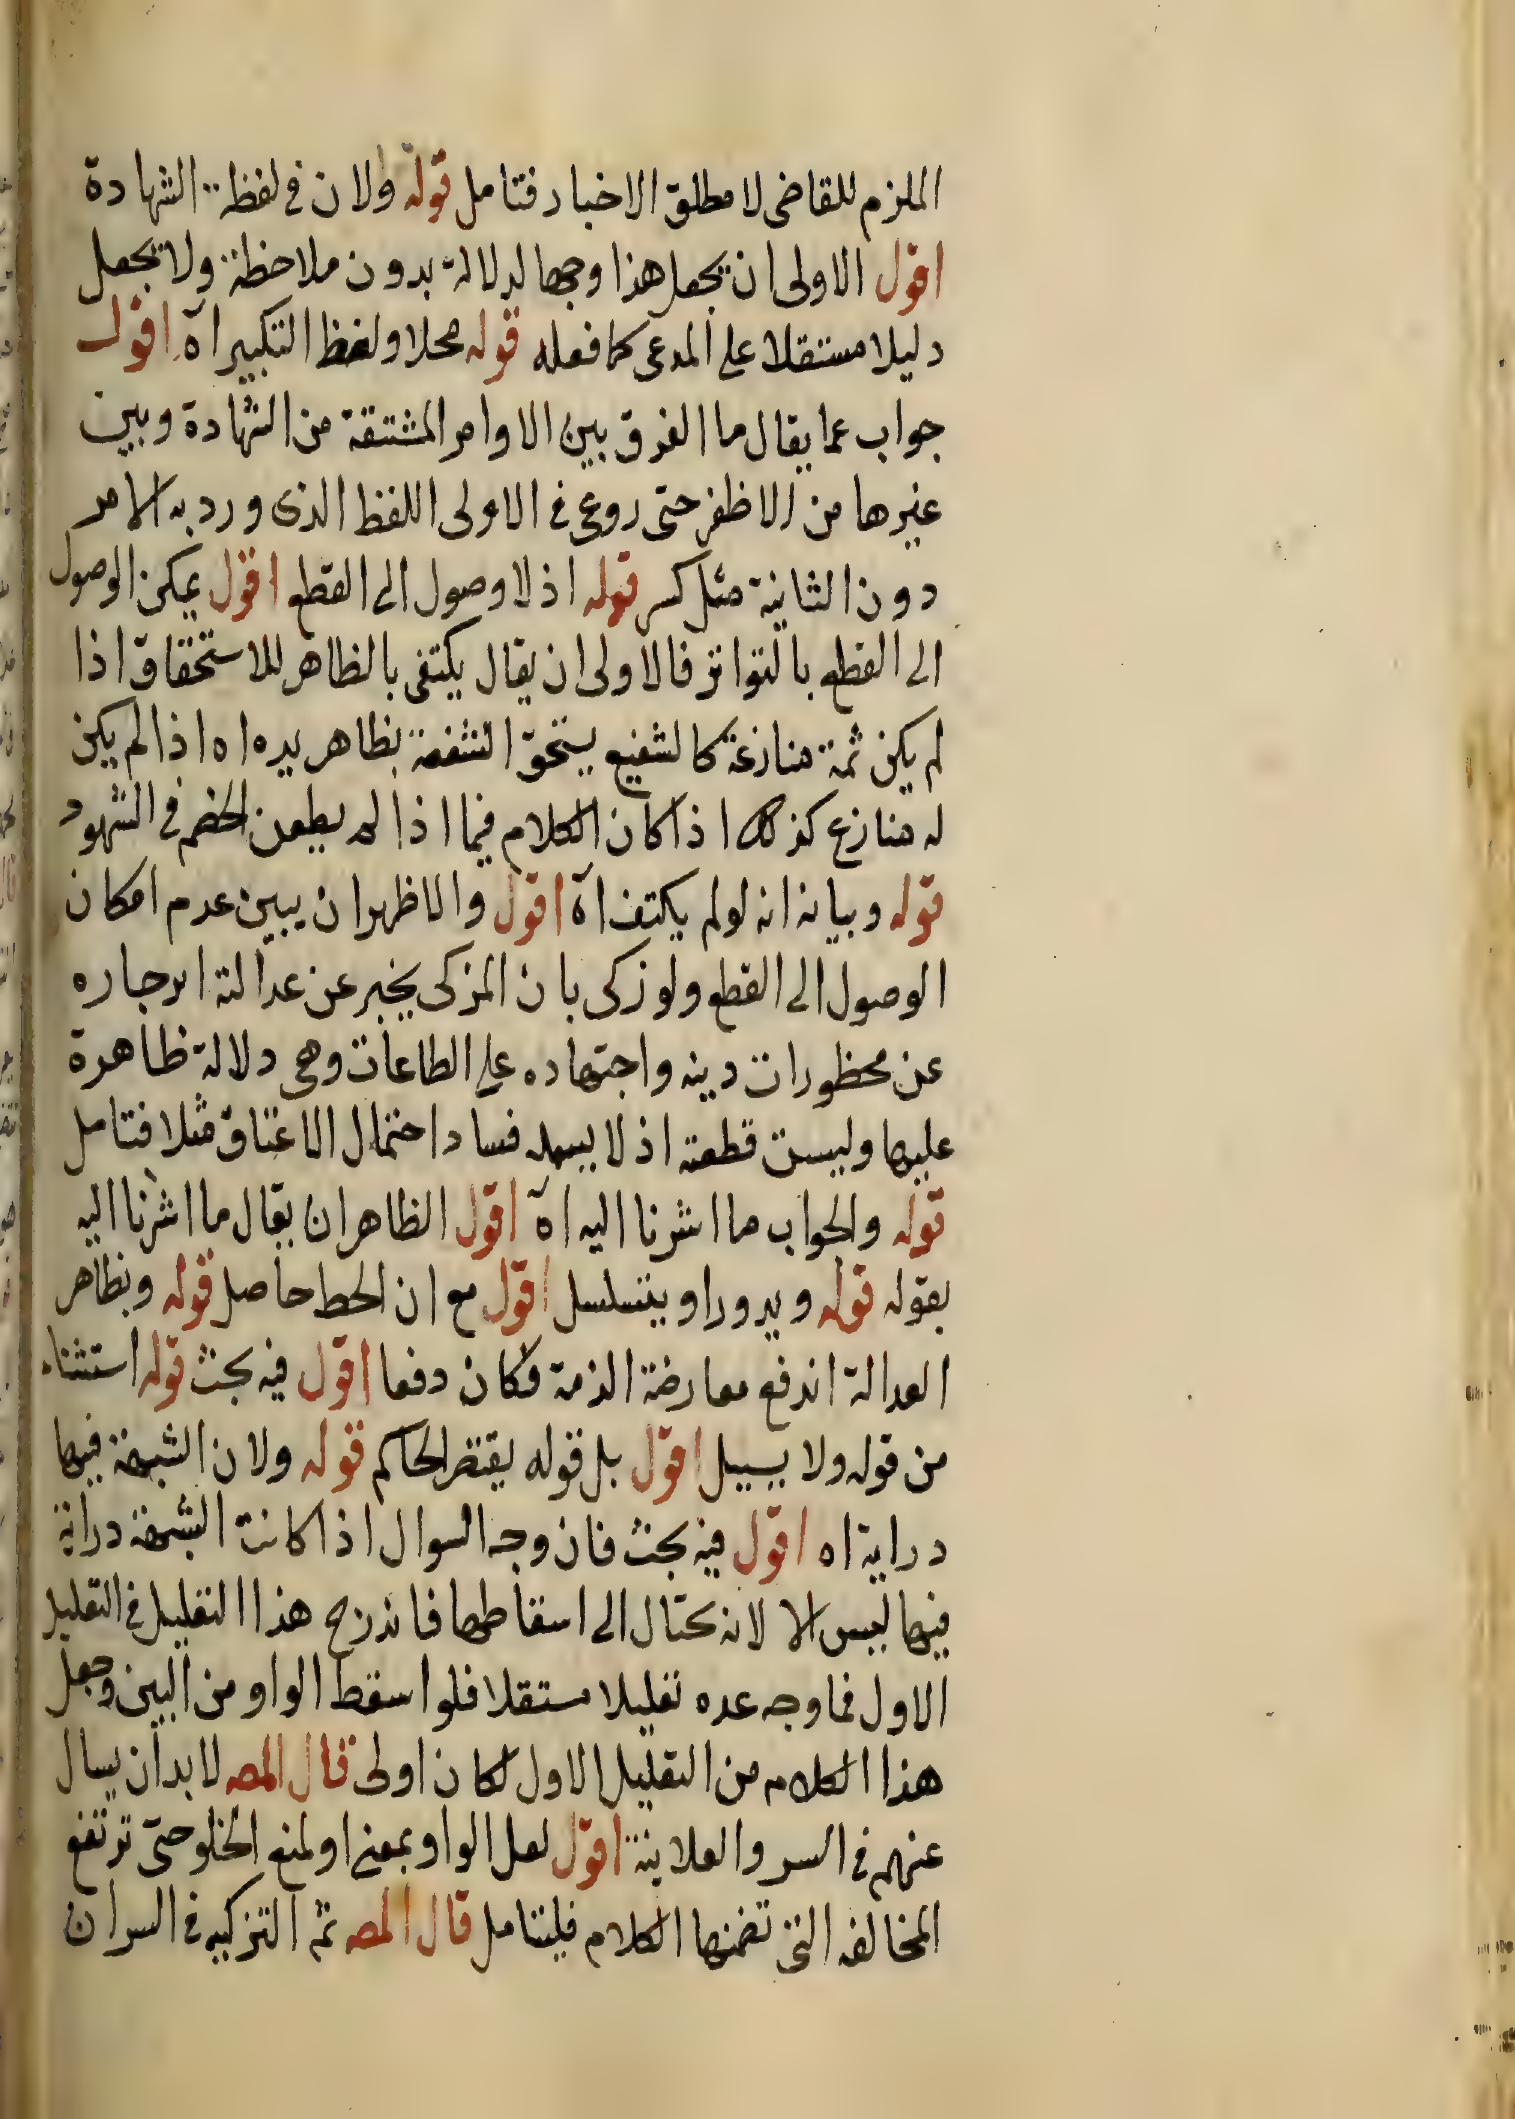 الملزم للقاضى لا مطلق الاخبار فتامل قوله ولان فى لفظة الشهادة
اقول الاولى ان يجعل هذا وجها لدلالة بدون ملاحظة ولا يجعل
دليلا مستقلا على المدعى كما فعله قوله محلا ولفظ التكبير اه اقول
جواب عما يقال ما الفرق بين الاوامر المشتقة من الشهادة وبين
غيرها من الاظفر حتى روعى فى الاولى اللفظ الذى ورد به الامر
دون الثانية مثل كبر قوله اذ لا وصول الى القطع اقول يمكن الوصول
الى القطع بالتواتر فالاولى ان يقال يكتفى بالظاهر للاستحقاق اذا
لم يكن ثمة منازعة كالشفيع يستحق الشفعة بظاهر يده اه اذا لم يكن
له منازع كذلك اذا كان الكلام فيما اذا لم يطعن الخصم فى الشهود
قوله وبيانه انه لو لم يكتف اه اقول والاظهر ان يبين عدم امكان
الوصول الى القطع ولو زكى بان المزكى يخبر عن عدالته انزجاره
عن محظورات دينه واجتهاده على الطاعات وهى دلالة ظاهرة
عليها وليست قطعة اذ لا فساد احتمال الاعتاق مثلا فتامل
قوله والجواب ما اشرنا اليه اه اقول الظاهر ان يقال ما اشرنا اليه
بقوله قوله ويدور او يتسلسل اقول مع ان الحط حاصل قوله وبظاهر
العدالة اندفع معارضة الذمة فكان دفعا اقول فيه بحث قوله استثناء
من قوله ولا يسيل اقول بل قوله يقتصر الحاكم قوله ولان الشبهة فيها
دراية اه اقول فيه بحث فان وجه السوال اذا كانت الشبهة دراية
فيها ليس الا لانه يحتال الى اسقاطها فاندرج هذا التعليل فى التعليل
الاول فما وجه عده تعليلا مستقلا فلو اسقط الواو من البين وجعل
هذا الكلام من التعليل الاول لكان اولى قال المصه لابد ان يسال
عنهم فى السر والعلانية اقول لعل الواو بمعنى او لمنع الخلو حتى ترتفع
المخالفه التى تضمنها الكلام فليتامل قال المصه ثم التزكيه فى السر ان